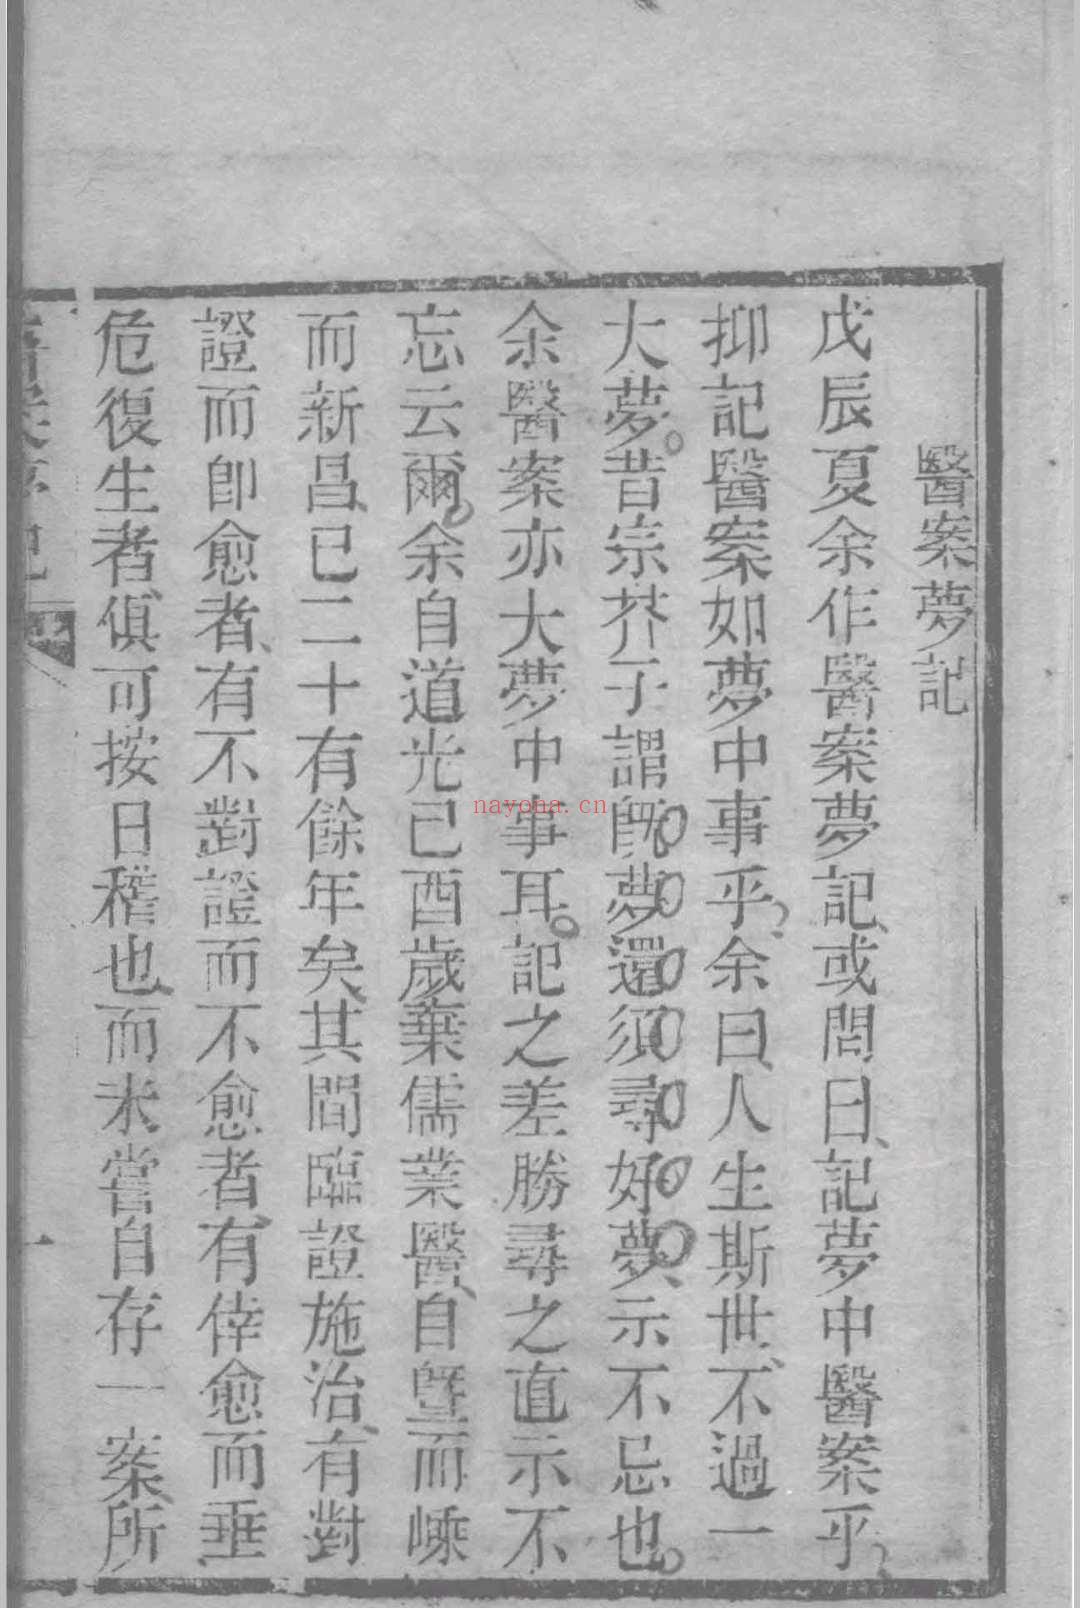 醫案夢記
戊辰夏余作醫案夢記或問曰記夢中醫案乎
抑記醫案如夢中事乎余曰人生斯世不過一
大夢昔宗芥子謂既夢還須尋好夢示不忘也
余醫案亦大夢中事耳記之差勝尋之直示不
忘云爾余自道光己酉歲棄儒業醫自暨而嵊
而新昌已二十有餘年矣其間臨證施治有對
證而即愈者有不對證而不愈者有倖愈而垂
危復生者俱可按日稽也而未嘗自存一案所
nayona.cn